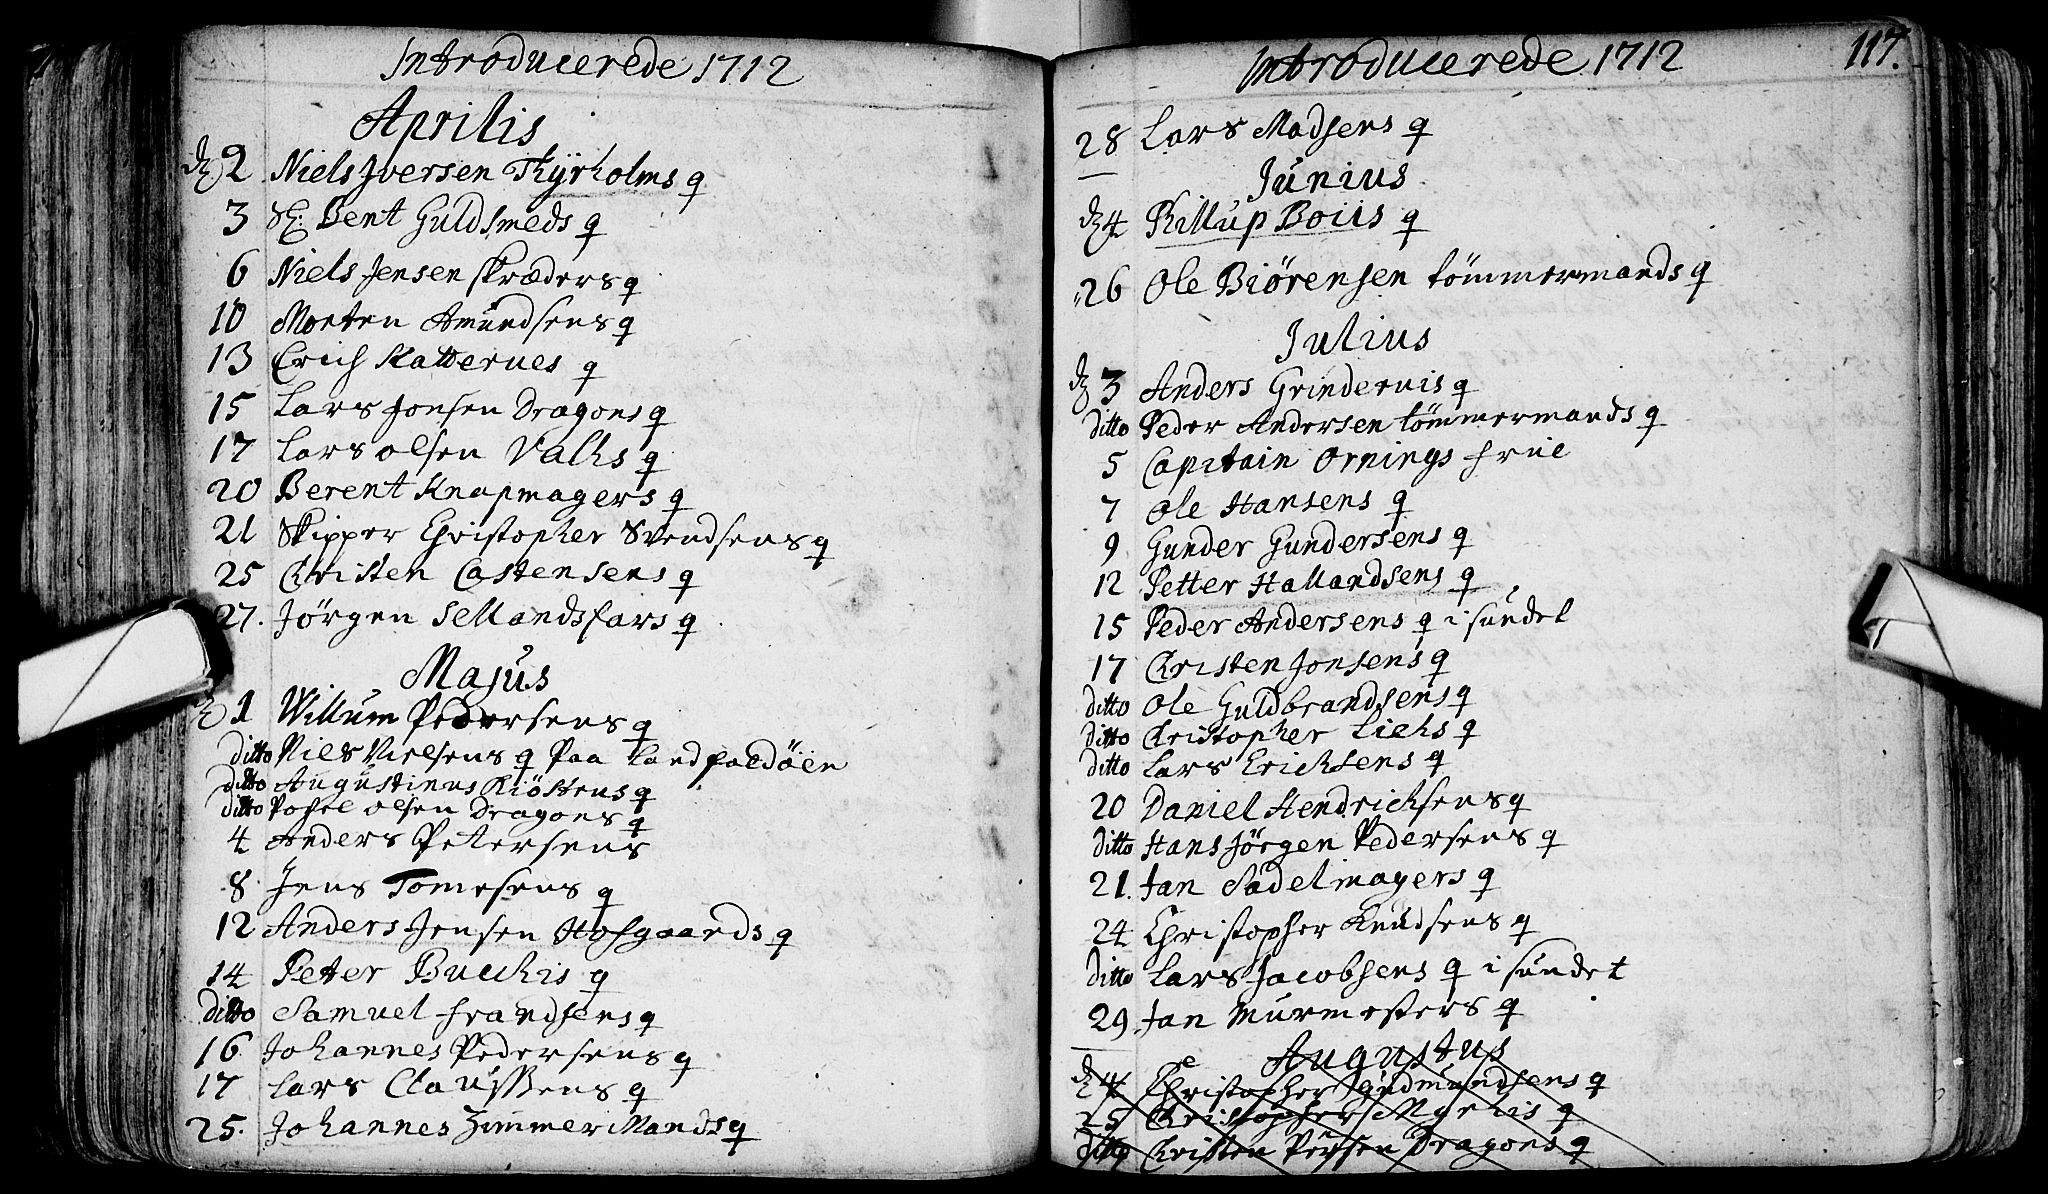 Introducerede 1712
Aprilis
dʒ 2 Niels Iversen Thyrholms q
3 Sl: Bent Guldsmeds q
6 Niels Jensen skræders q
10 Morten Amundsens q
13 Erich Katterves q
15 Lars Jonsen Dragons q
17 Lars olsen Valks q
20 Berent Knapmagers q
21 Skipper Christopher Svendsens q
25 Christen Castensens q
27. Jörgen Sellandsfars q
Majus
1 Willum Pedersens q
ditto Niels Nielsens q paa Landfaldöen
ditto Augustinus Kiöstens q
ditto Pofvel olsen Dragons q
4 Anders Petersens
8 Jens Tomesens q
12 Anders Jensen Hofgaards q
14 Peter Bucchis q
ditto Samuel frandsens q
16 Johannes Pedersens q
17 Lars Claussens q
25. Johannes Zimmer Mands q
Introducerede 1712
117.
28 Lars Madsens q
Junius
dʒ 4 Phillup Boiis q
26 Ole Biörensen tömmermands q
Julius
dʒ 3 Anders Grindervis q
ditto Peder Andersen tömmermands q
5 Capitain Ornings frue
7 Ole Hansens q
9 Gunder Gundersens q
12 Petter Hallandsens q
15 Peder Andersens q i sundet
17 Christen Jonsens q
ditto Ole Guldbrandsens q
ditto Christopher Lieks q
ditto Lars Ericksens q
20 Daniel Hendrichsens q
ditto Hans Jörgen Pedersens q
21. Jan Sadelmagers q
24 Christopher Knudsens q
ditto Lars Jacobsens q i sundet
29 Jan Murmesters q
Augustus
dʒ 4 Christopher Gudmundsens q
25 Christopher Myrhis q
ditto Christen Persen Dragons q